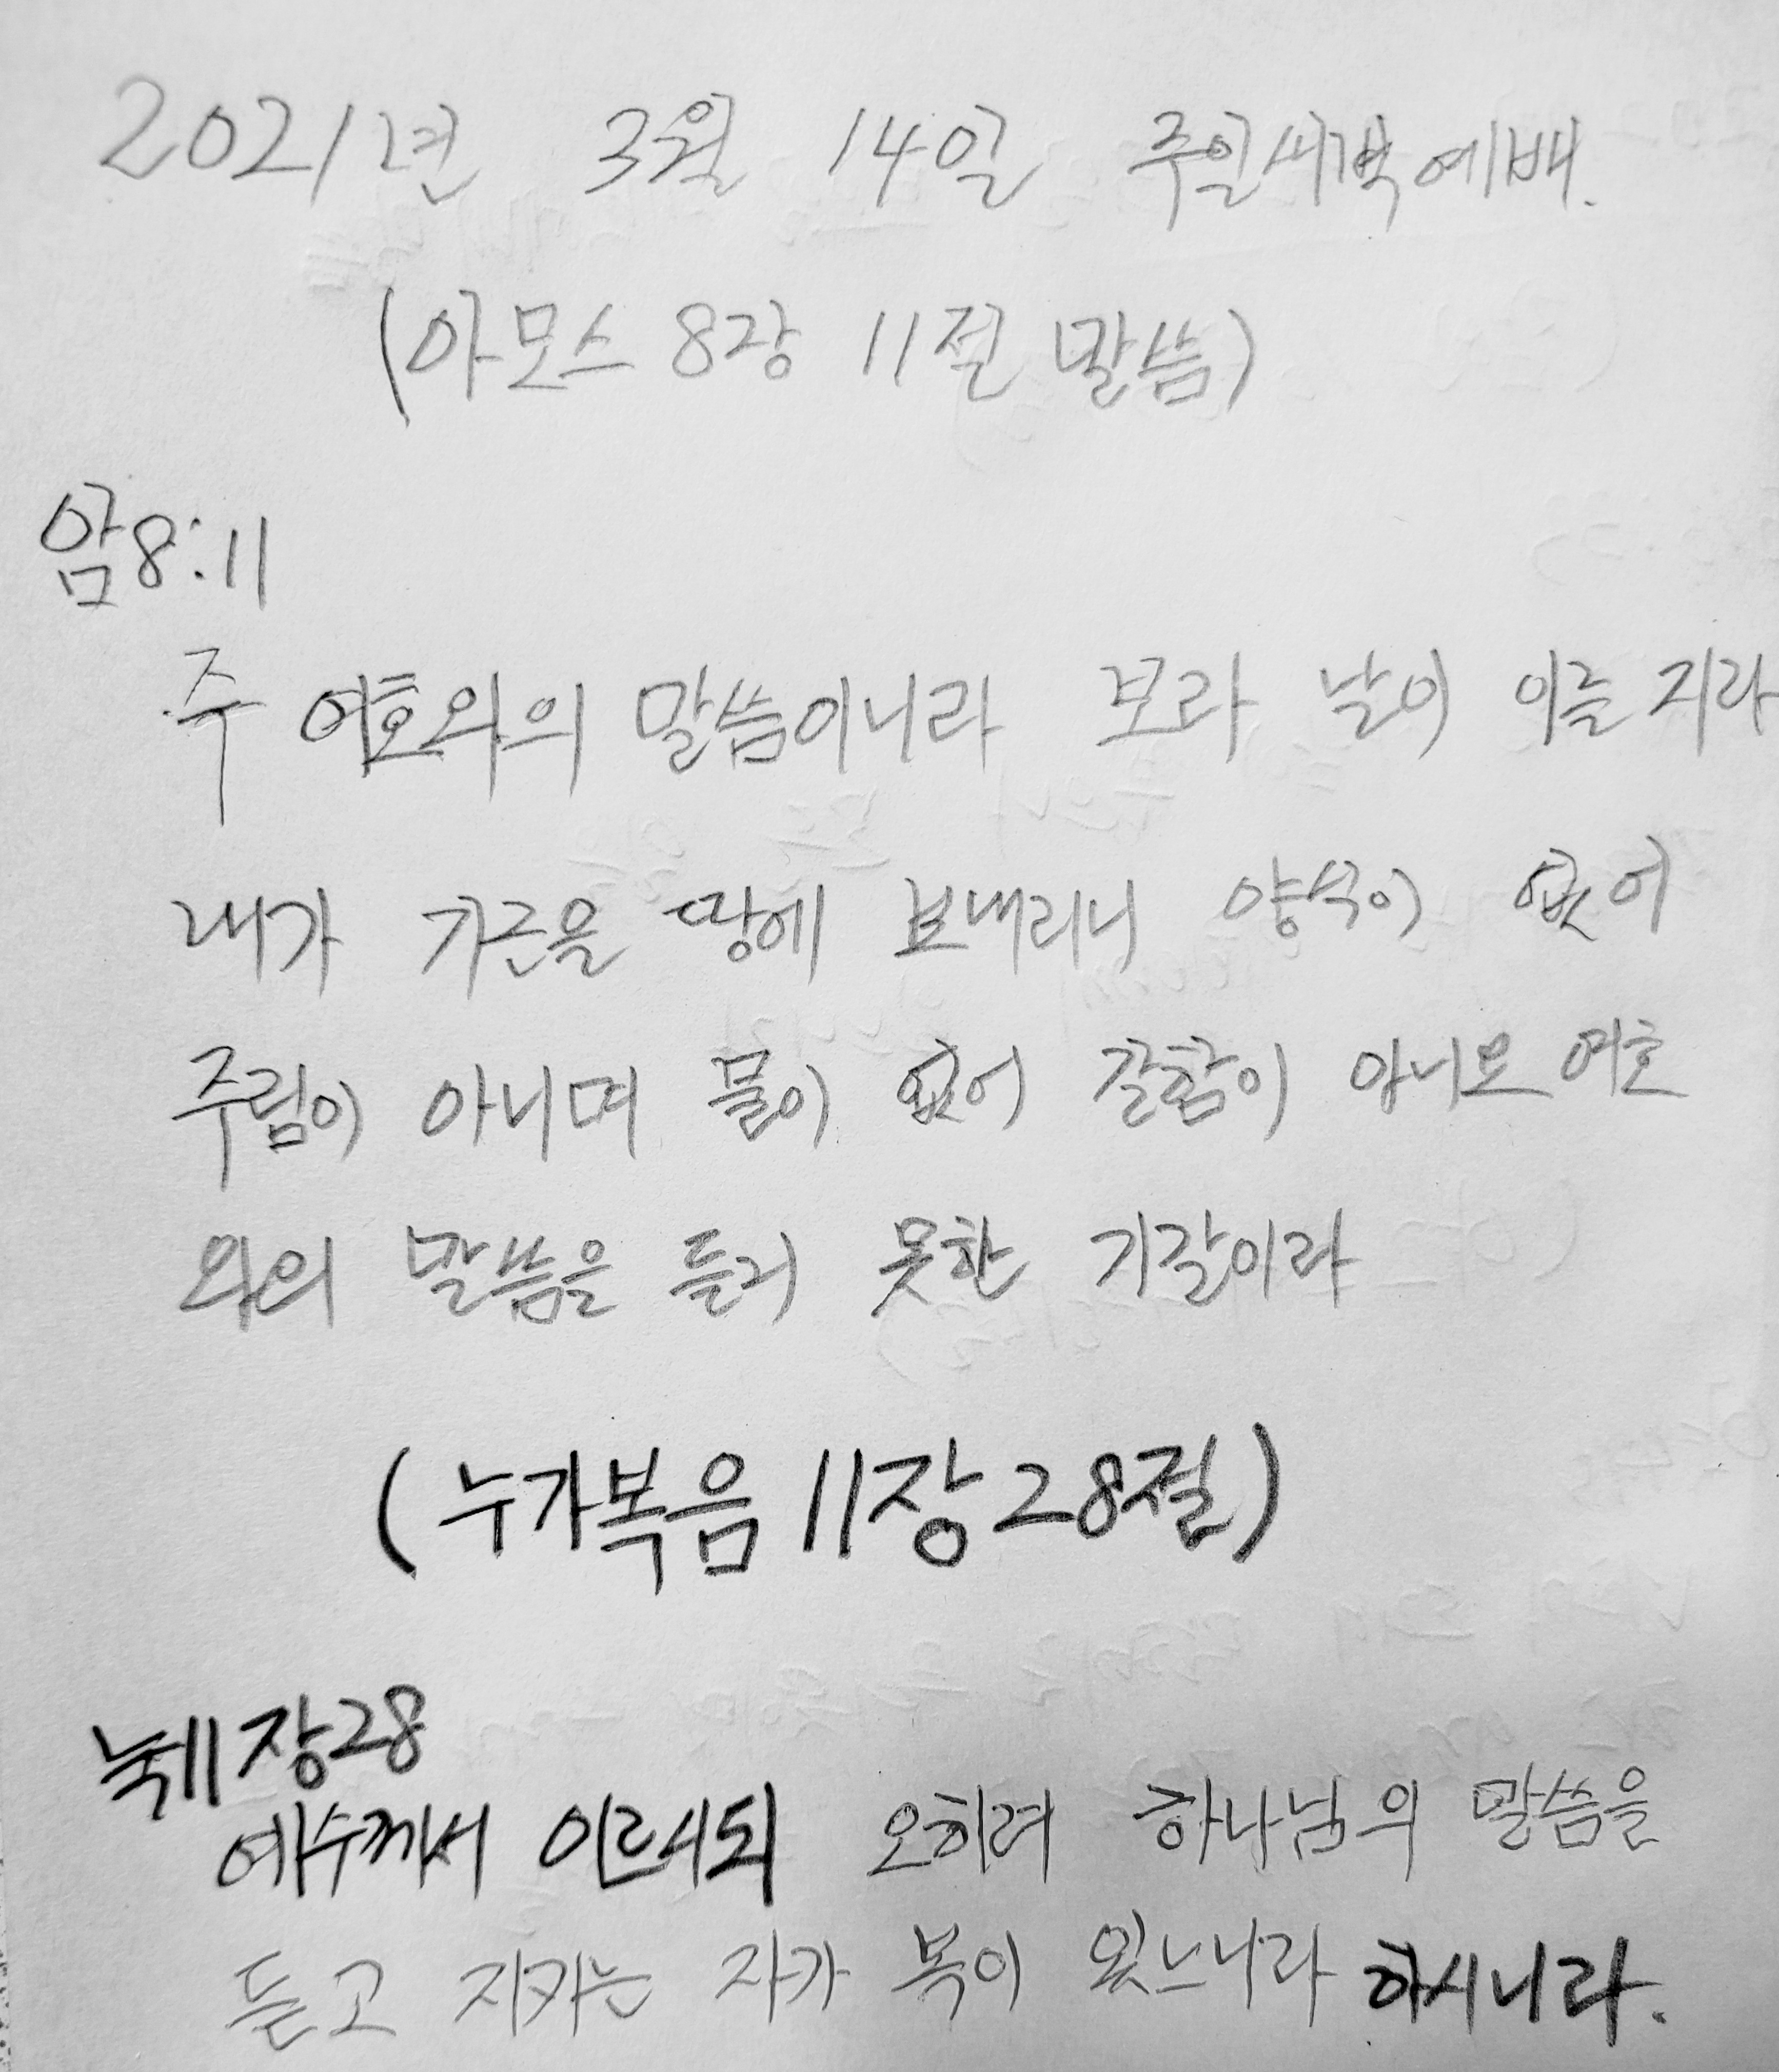 2021년 3월 14일 주일새벽예배.
(아모스 8장 11절 말씀)
암8:11
주 여호와의 말씀이니라 보라 날이 이를지라
내가 기근을 땅에 보내리니 양식이 없어
주림이 아니며 물이 없어 갈함이 아니요 여호
와의 말씀을 듣지 못한 기갈이라
(누가복음 11장 28절)
눅11장28
예수께서 이르시되 오히려 하나님의 말씀을
듣고 지키는 자가 복이 있느니라 하시니라.